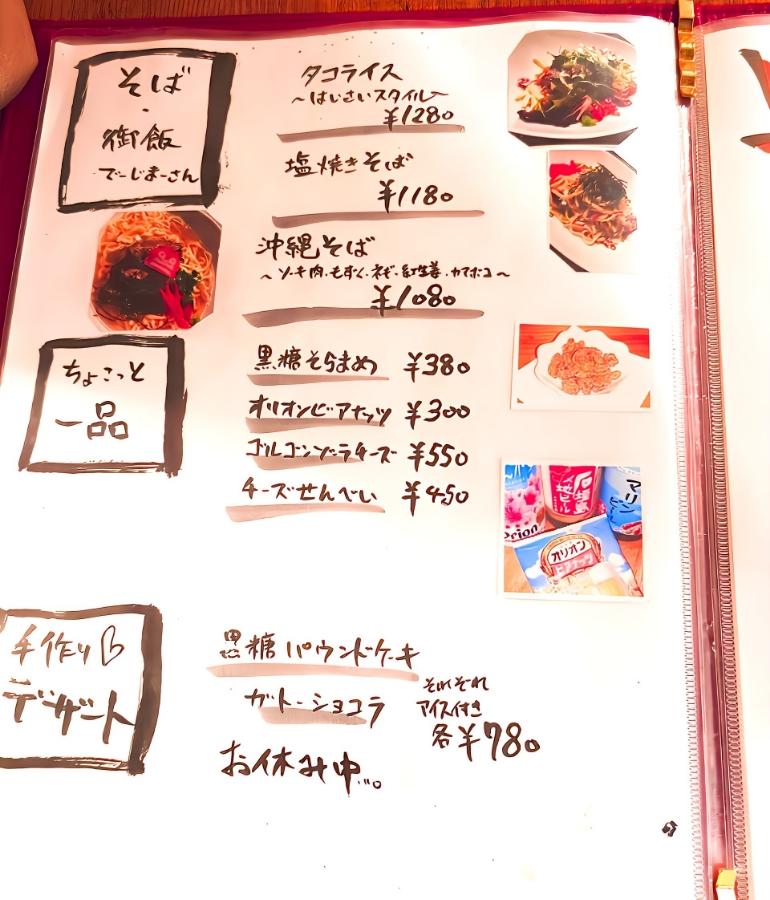 そば
・
御飯
でーじまーさん
タコライス
〜はいさいスタイル〜
¥1280
塩焼きそば
¥1180
沖縄そば
〜ソーキ肉、もずく、ネギ、紅生姜、カマボコ〜
¥1080
ちょこっと
一品
黒糖そらまめ ¥380
オリオンビアナッツ ¥300
ゴルゴンゾーラチーズ ¥550
チーズせんべい ¥450
石垣島
地ビール
マリン
ビール
Orion
オリオン
ビアナッツ
手作り
デザート
黒糖パウンドケーキ
ガトーショコラ
それぞれ
アイス付き
各¥780
お休み中...。